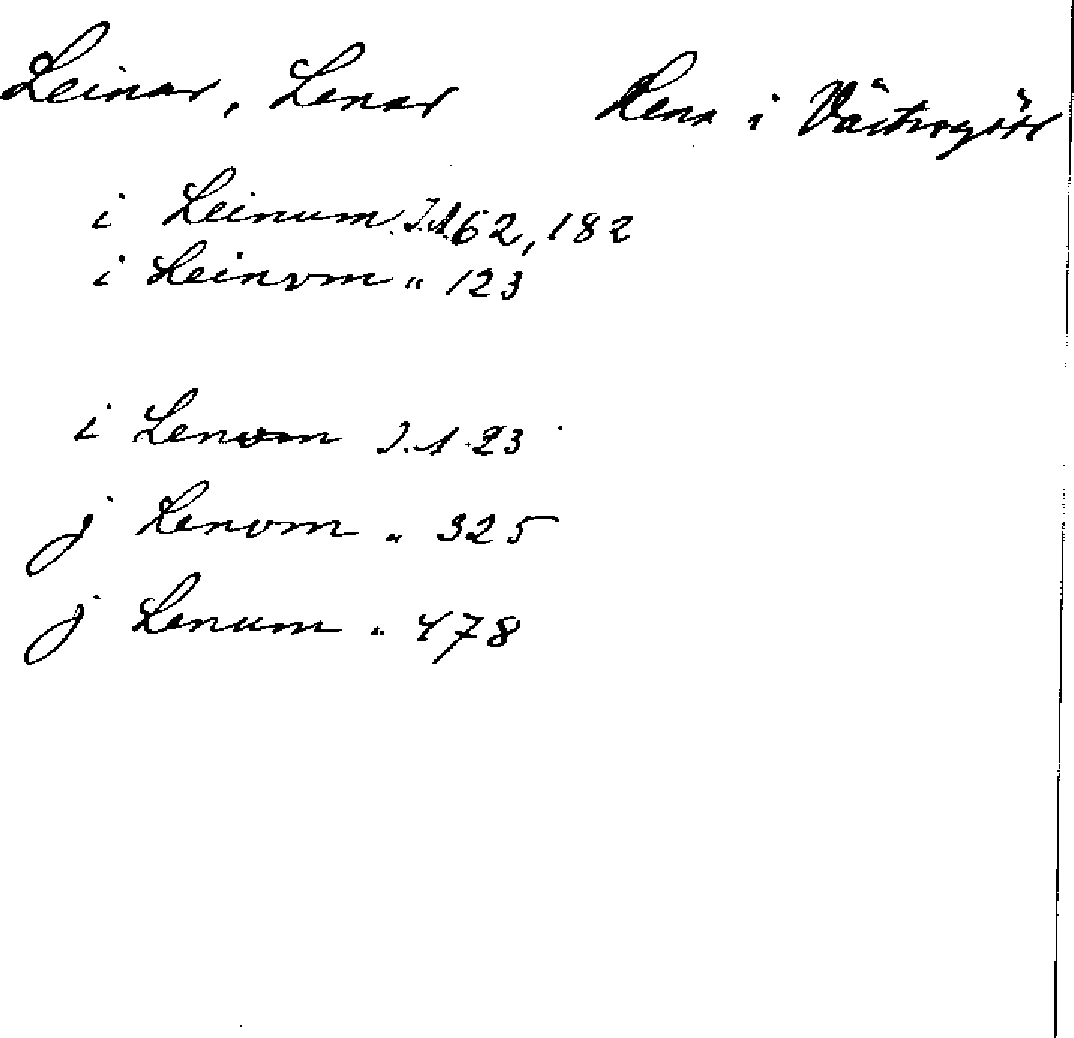 Leinar, Lenar Lena i Västergötl
i Leinum. J.A.62, 182
i Leinvm „ 123
i Lenom J.A. 23
j Lenvm „ 325
j Lenum „ 478